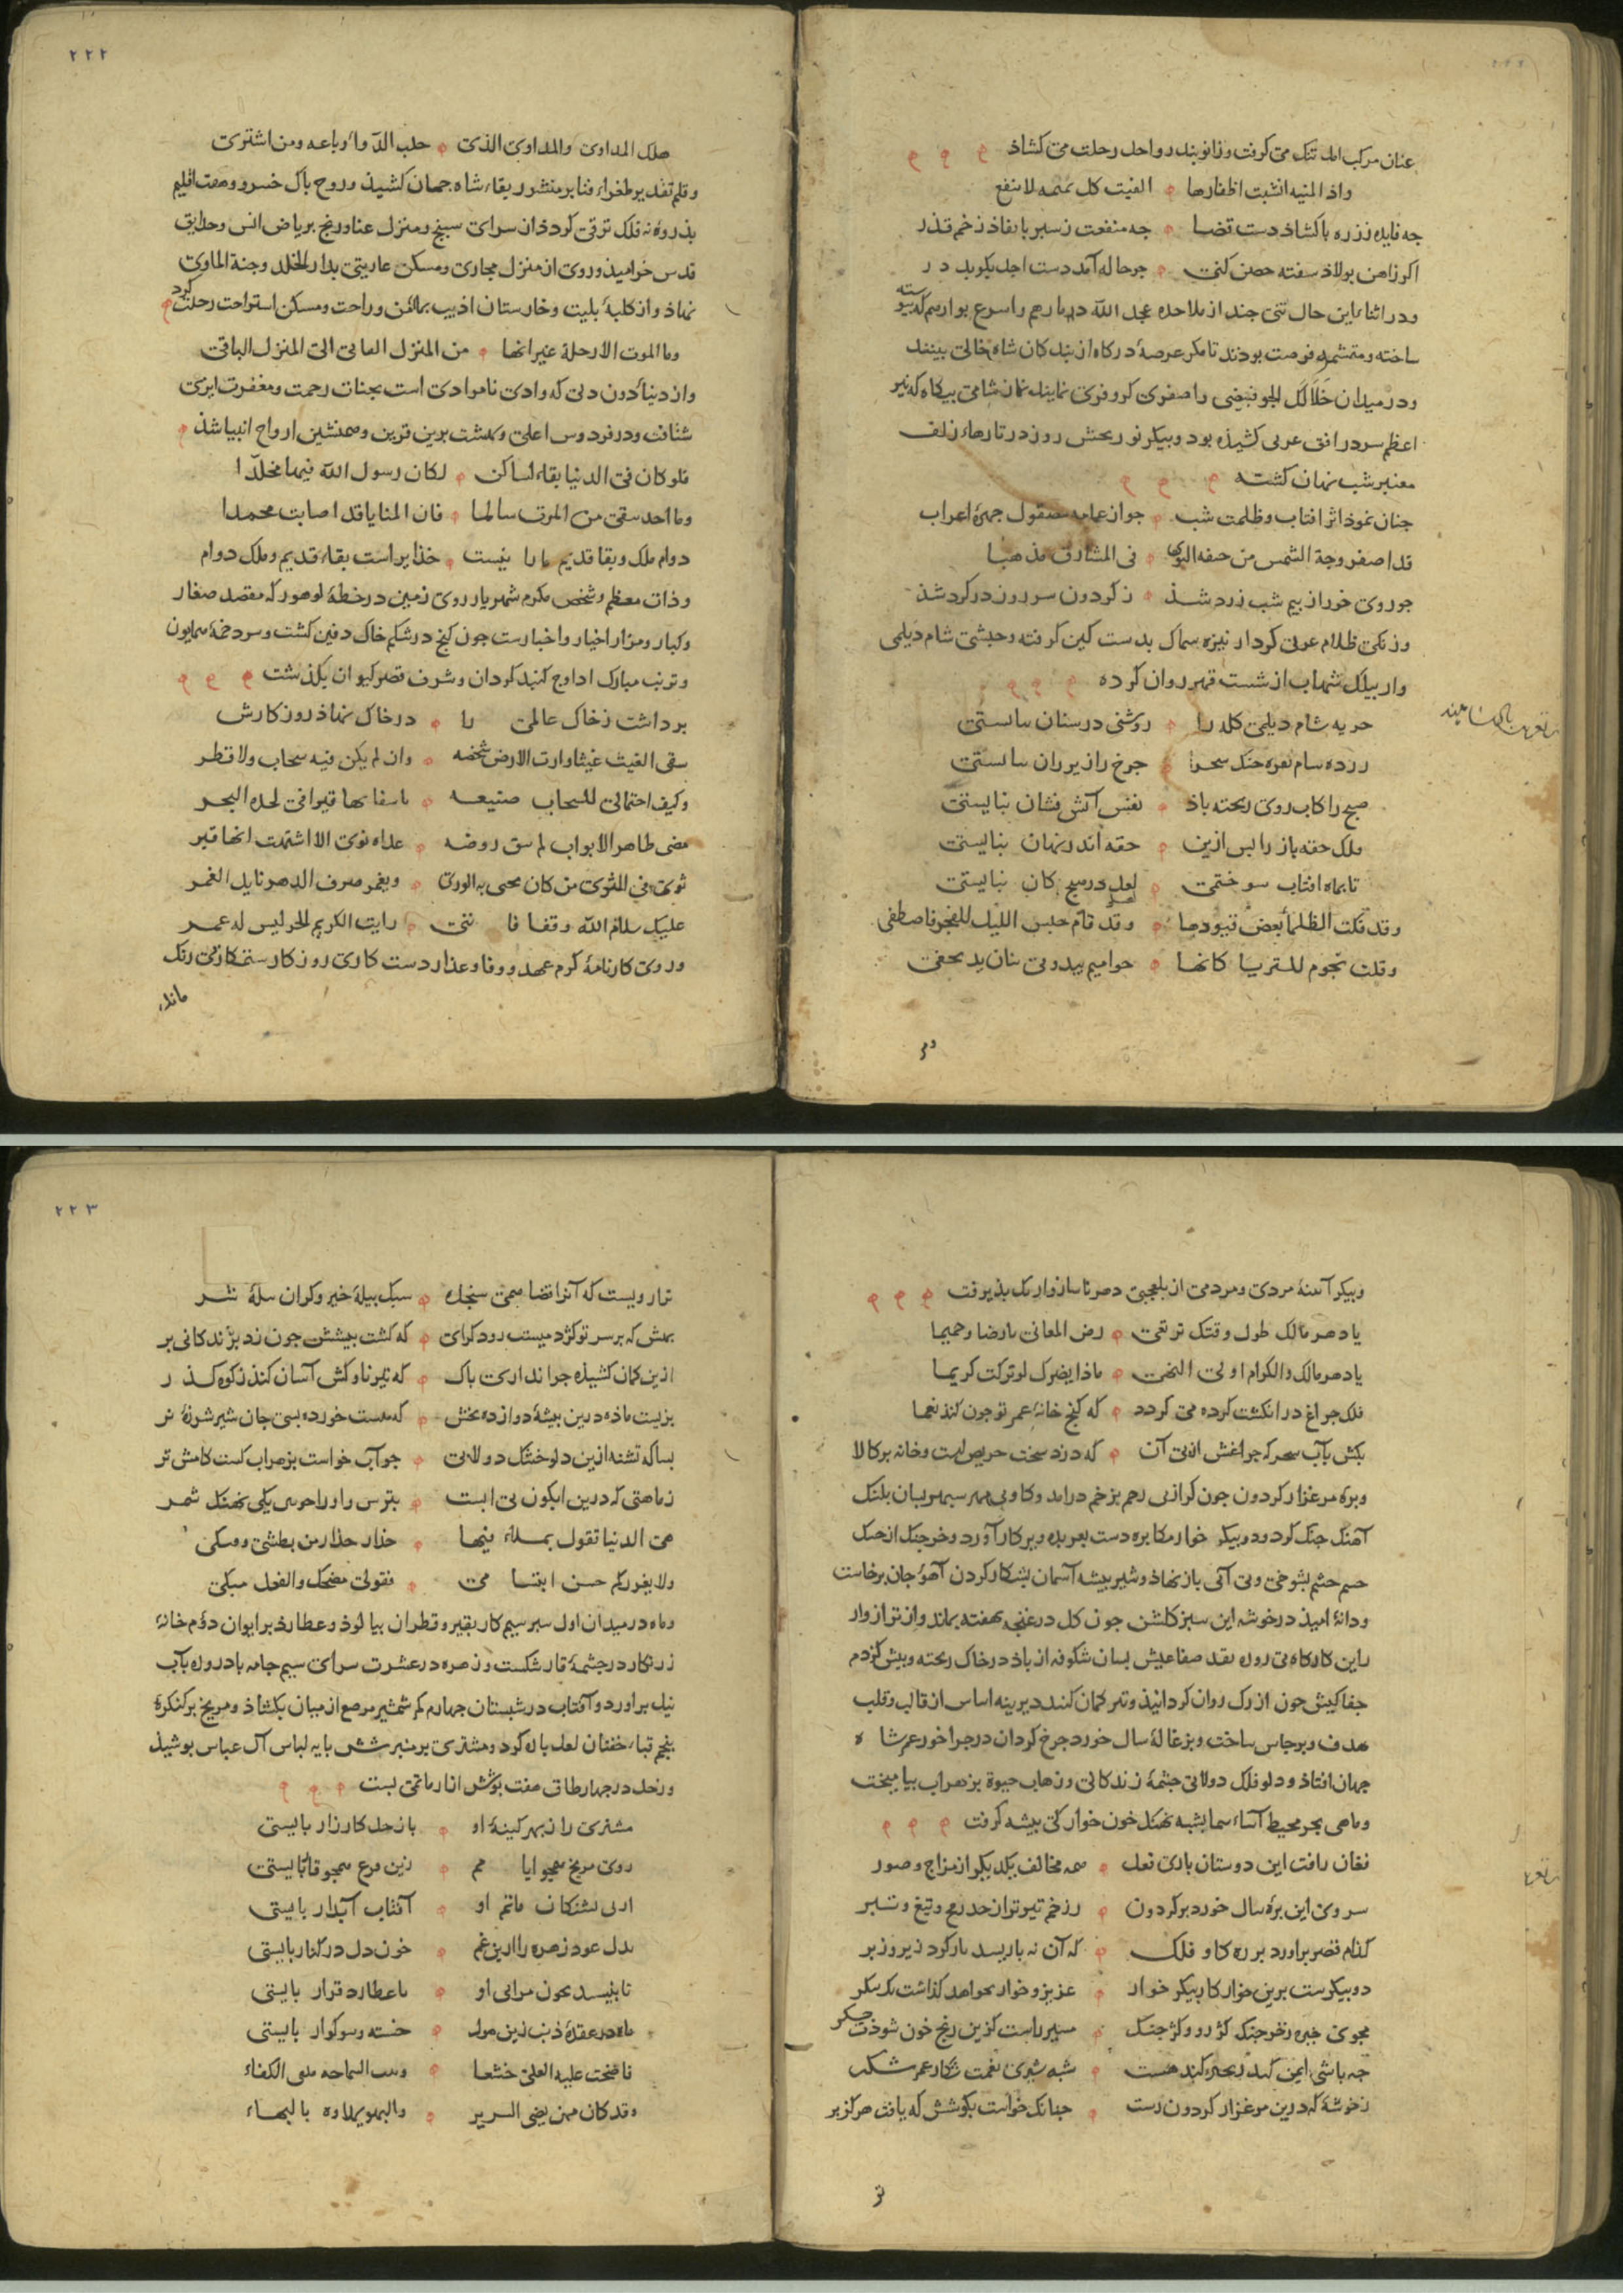 عنان مرکب امل تنک می کرفت و زانوبند رواحل رحلت می کشاد
واذا المنیه انشبت اظفارها الفیت کل تمیمه لا تنفع
جه فایده ززره با کشاذ دست قضا جه منفعت ز سبر با نفاذ زخم قذر
اکر زاهن بولاذ سفته حصن کنی جو حاله آمد دست اجل بکوبد در
ودر اثناء این حال تنی جند از ملاحده عجل الله دمارهم واسرع بوارهم که بیوسته
ساخته ومتشمر فرصت بودند تا مکر عرصۀ درکاه از بندکان شاه خالی بینند
ودر میدان خلا لک الجو فبیضی واصفری کر وفری نمایند نماز شامی بیکاه که نیر
اعظم سر در افق غربی کشیذه بود وبیکر نور بخش روز در تارهاء زلف
معنبر شب نهان کشته
جنان نموذ اثر افتاب وظلمت شب جو از عمامه مصقول جهرۀ اعراب
قد اصفر وجه الشمس من خیفه النوی فی المشارق مذهبا
جو روی خور از بیم شب زرد شذ ز کردون سر روز در کرد شذ
وزنکی ظلام عونی کردار نیزه سماک بدست کین کرفته وحبشی شام دیلمی
وار بیلک شهاب از شست قهر روان کرده
حربه شام دیلمی کله را روشنی در سنان بایستی
زرده سام نقره خنک سحر را جرخ را زیر ران بایستی
صبح را کاب روی ریخته باذ نفس آتش فشان نبایستی
ملک حقه باز را بس ازین حقه اندر نهان نبایستی
تا بماه افتاب سوختمی لعل در صبح کان نبایستی
وقد فکت الظلماء بعض قیودها وقد قام جیش اللیل للفجر فاصطفی
وقلت نجوم للثریا کانها خواتیم تبدو فی بنان ید تخفی
هلک المداوی والمداوی الذی جلب الدواء وباعه ومن اشتری
وقلم تقدیر طغراء فنا بر منشور بقاء شاه جهان کشیذ وروح باک خسرو وهفت اقلیم
بذروۀ نه فلک ترقی کرد واز سرای سبنج ومنزل عنا ورنج بریاض انس وحدایق
قدس خرامید وروی از منزل مجازی ومسکن عاریتی بدار الخلد وجنة الماوی
نهاذ واز کلبۀ بلیت وخارستان اذیت بمأمن وراحت ومسکن استراحت رحلت کرد
وما الموت الا رحلة غیر انها من المنزل الفانی الی المنزل الباقی
واز دنیاء دون دنی که وادی نامرادی است بجنات رحمت ومغفرت ایزدی
شتافت ودر فردوس اعلی وبهشت برین قرین وهمنشین ارواح انبیا شذ
فلو کان فی الدنیا بقاء لساکن لکان رسول الله فیها مخلدا
وما احد یبقی من الموت سالما فان المنایا قد اصابت محمدا
دوام ملک وبقا قدیم ما را نیست خذا براست بقاء قدیم وملک دوام
وذات معظم وشخص مکرم شهریار روی زمین در خطۀ لوهور که مقصد صغار
وکبار ومزار اخیار واخبارست جون کنج در شکم خاک دفین کشت وسر دخمۀ همایون
وتربت مبارک از اوج کنبد کردان وشرف قصر کیوان بکذشت
برداشت ز خاک عالمی را در خاک نهاذ روزکارش
سقی الغیث غیثا وارت الارض شخصه وان لم یکن فیه سحاب ولا قطر
وکیف احتمالی للسحاب صنیعه باسقایها قبرا فی لحده البحر
مضی طاهر الاثواب لم تبق روضه غداه ثوی الا اشتهت انها قبر
ثوی فی الثری من کان یحیی به الوری ویغمر صرف الدهر نایله الغمر
علیک سلام الله وقفا فاننی رایت الکریم الحر لیس له عمر
وروی کارنامۀ کرم عهد ووفا وعذار دست کاری روزکار ستمکار بی رنک
ماند
وبیکر آینۀ مردی ومردمی از بلعجبی دهر ناسازوار یک بذیرفت
یا دهر مالک طول وقتک ترتعی روض المعالی بارضا وجمیما
یا دهر مالک والکرام اولی النهی ماذا یضرک لو ترکت کریما
فلک جراغ در انکشت کرده می کردد که کنج خانۀ عمر تو جون کند یغما
بکش بآب سحرکه جراغش از بی آن که دزد سخت حریص است وخانه بر کالا
وبره مرغزار کردون جون کرازنی رحم بزخم درامد وکاو بی مهر سبهر بسان بلنک
آهنک جنک کرد ودو بیکر خوار مکابره دست بعربده وبیکار آورد وخرجنک از جنک
جسم حشم بشوخی وبی آبی باز نهاذ وشیر بیشه آسمان بشکار کردن آهوء جان برخاست
ودانۀ امیذ در خوشه این سبز کلشن جون کل در غنجه نهفته بماند واز ترازوار
راین کارکاه بی روزه نقد صفا عیش بسان شکوفه از باذ در خاک ریخته ونیش کزدم
جفا کیش خون از رک روان کردانیذ وتیر کمان کند دیرینه اساس از قالب وقلب
هدف وبرجاس ساخت وبزغالۀ سال خورد جرخ کردان در جرا خور عمر شاه
جهان افتاذ ودلو فلک دولابی جشمۀ زندکانی وزهاب حیوة بزهراب بیامیخت
وماهی بحر محیط آساء سما بشبه نهنک خون خوار کی بیشه کرفت
نغان زافت این دوستان بازی نعل همه مخالف یکدیکر از مزاج وصور
سروی این برۀ سال خورد بر کردون ز زخم تیر تر از حد رمح وتیغ وتبر
کذام قصر براورد برره کاو فلک که آن نه باز بسد مار کرد زیر وزبر
دو بیکرست برین خوار کار بیکر خوار عزیز وخوار بخواهد کذاشت یک بیکر
مجوی خیره ز خرجنک کژ رو وکژ جنک مسیر راست کزین رنج خون شوذت جکر
جه باشی ایمن شبه شیری نعمت شکار عمر شکر
ز خوشۀ که درین مرغزار کردون رست جنانک خواست بکوشش که یافت هرکز بر
ترازویست که آنرا قضا همی سنجد سبک ببلۀ خیر وکران ببلۀ شر
بهش که بر سر تو کژدمیست زود کرای که کشت نیشش جون زد بزندکانی بر
ازین کمان کشیذه جرا نداری باک که تیر ناوکش آسان کند ز کوه کذر
بزیست ماده درین بیشۀ دوازده بخش که هست خورده بسی جان شیر شرزۀ نر
بسا که تشنه ازین دلو خشک دولابی جو آب خواست بزهراب کشت کامش تر
ز ماهیی که درین ابکون بی ابست بترس زانک نهنک شمر
هی الدنیا تقول بملاء فیها حذار حذار من بطشی وفتکی
ولا یغررکم حسن ابتسامی فقولی مضحک والفعل مبکی
وماه در میدان اول سبر سیم کار بقیر وقطران بیالوذ وعطارد بر ایوان دوم خانۀ
زرنکار در جشمۀ قار شکست وزهره در عشرت سرای سیم جامه بادروده بآب
نیل براورد وآفتاب در شبستان جهارم کمر شمشیر مرصع از میان بکشاذ ومریخ بر کنکرۀ
بنجم قباء خفتان لعل باره کرد ومشتری بر منبر شش بایه لباس آل عباس بوشیذ
وزحل در جهارطاق هفت بوشش ازار ماتمی بست
مشتری را ز بهر کینۀ او با زحل کارزار بایستی
روی مریخ همجو ایام زین فزع همجو قار بایستی
از بی تشنکان ماتم او آفتاب آبدار بایستی
بدل عود زهره را ازین غم خون دل در کنار بایستی
تا نبیسد بخون مراثی او با عطارد قرار بایستی
ماه در عقدۀ ذنب زین هول خسته وسوکوار بایستی
فاضحت علیه العلی خشعا وبیت السماحه ملقی الکفاء
وقد کان ممن یضی السریر والبهو یملاوه بالبهاء